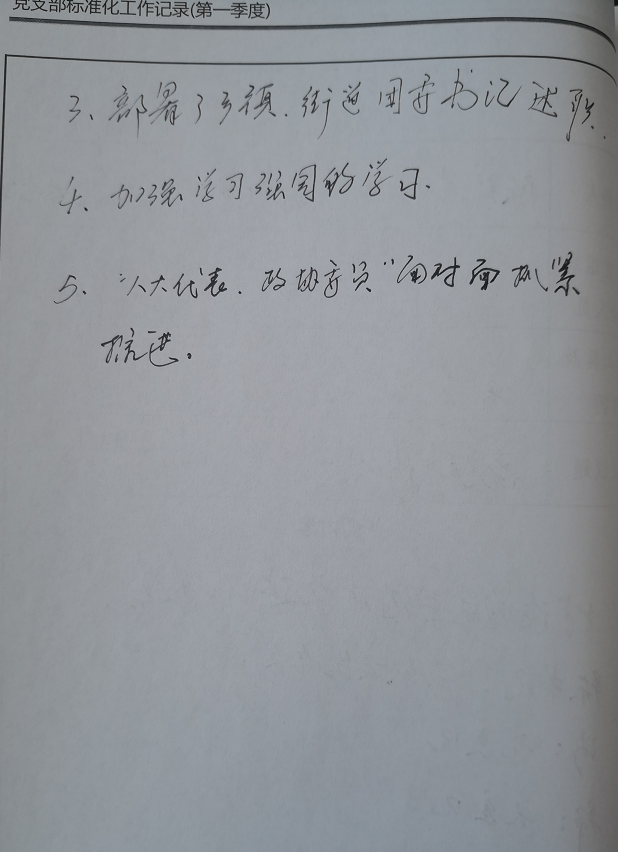 党支部标准化工作记录(第一季度)
3、部署了乡镇、街道团委书记述职.
4、加强学习强国的学习.
5、"人大代表、政协委员"面对面抓紧
推进。